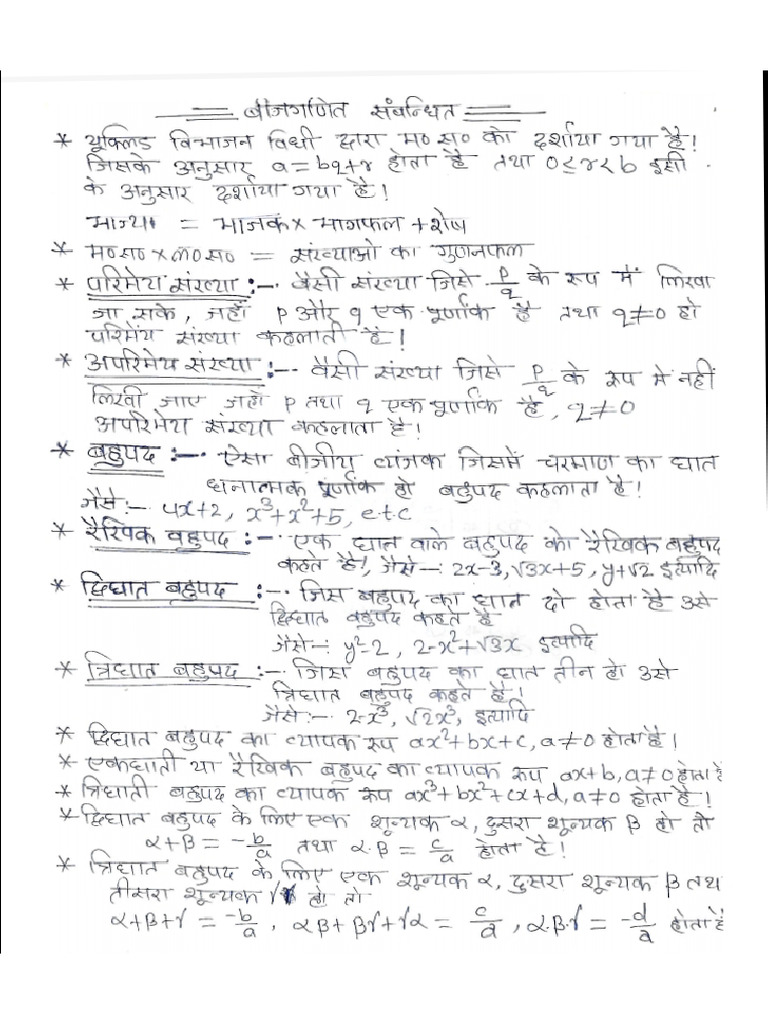 बीजगणित संबन्धित
* यूक्लिड विभाजन विधी द्वारा म० स० को दर्शाया गया है!
जिसके अनुसार a = bq+r होता है तथा 0≤r<b इसी
के अनुसार दर्शाया गया है!
भाज्य = भाजक × भागफल + शेष
* म०स० × ल० स० = संख्याओ का गुणनफल
* परिमेय संख्या :-. वैसी संख्या जिसे p/q के रूप में लिखा
जा सके, जहाँ p और q एक पूर्णांक है तथा q≠0 हो
परिमेय संख्या कहलाती है!
* अपरिमेय संख्या :-. वैसी संख्या जिसे p/q के रूप मे नहीं
लिखी जाए जहाँ p तथा q एक पूर्णांक है, q≠0
अपरिमेय संख्या कहलाता है!
* बहुपद :-. ऐसा बीजीय व्यंजक जिसमें चरमाण का घात
धनात्मक पूर्णांक हो बहुपद कहलाता है!
जैसे:-. 4x+2, x³+x²+5, e.t.c
* रैखिक बहुपद :-. एक घात वाले बहुपद को रैखिक बहुपद
कहते है!, जैसे-: 2x-3, √3x+5, y+√2 इत्यादि
* द्विघात बहुपद :-. जिस बहुपद का घात दो होता है उसे
द्विघात बहुपद कहते है
जैसे-: y²-2, 2-x²+√3x इत्यादि
* त्रिघात बहुपद :-. जिस बहुपद का घात तीन हो उसे
त्रिघात बहुपद कहते है!
जैसे:-. 2-x³, √2x³, इत्यादि
* द्विघात बहुपद का व्यापक रूप ax²+bx+c, a≠0 होता है!
* एकघाती या रैखिक बहुपद का व्यापक रूप ax+b, a≠0 होता है
* त्रिघाती बहुपद का व्यापक रूप ax³+bx²+cx+d, a≠0 होता है!
* द्विघात बहुपद के लिए एक शून्यक α, दुसरा शून्यक β हो तो
α+β = -b/a तथा α.β = c/a होता है!
* त्रिघात बहुपद के लिए एक शून्यक α, दुसरा शून्यक β तथ
तीसरा शून्यक γ हो तो
α+β+γ = -b/a, αβ+βγ+γα = c/a, α.β.γ = -d/a होता है